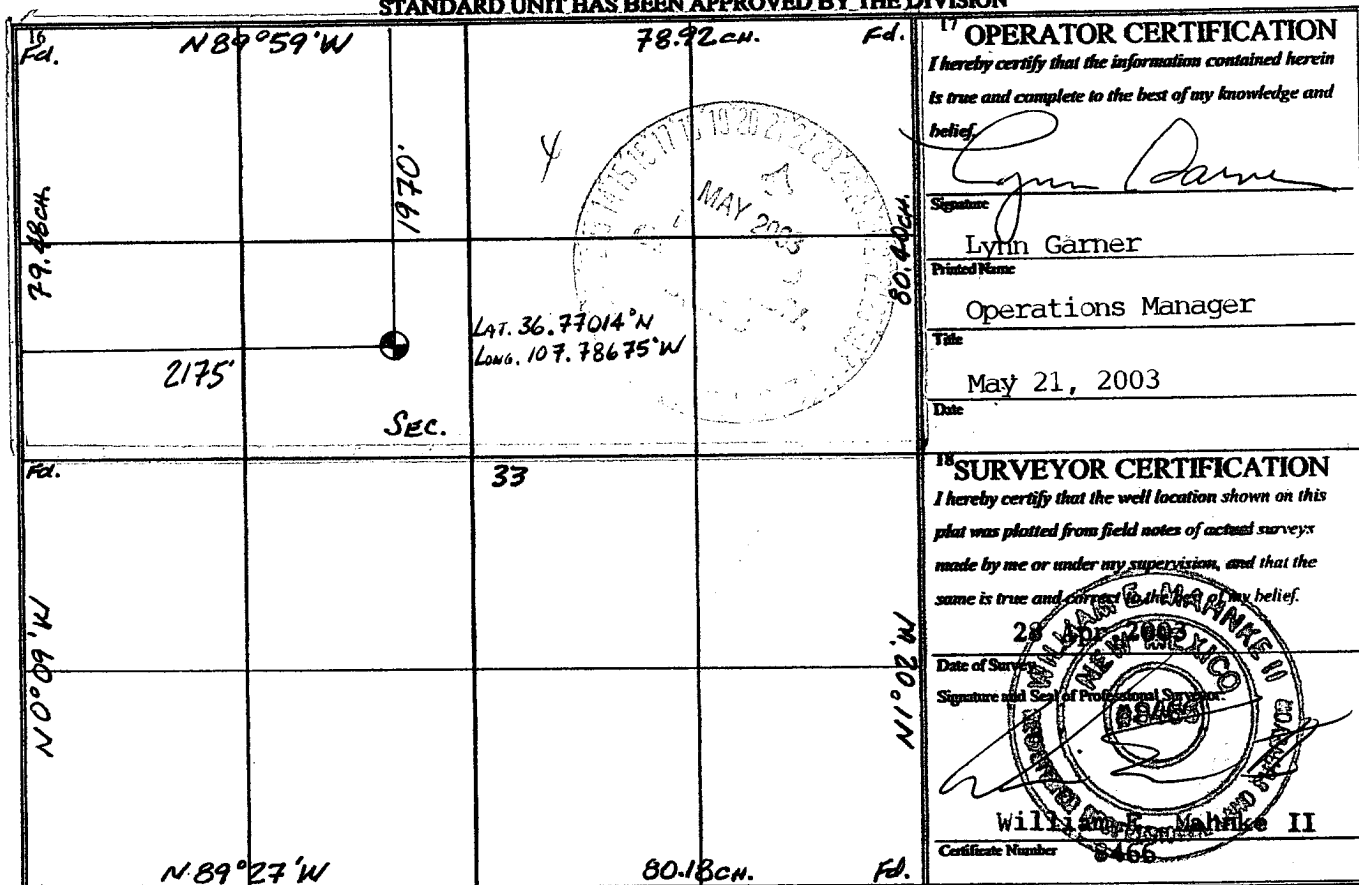 STANDARD UNIT HAS BEEN APPROVED BY THE DIVISION
16
Fd.
N 89°59'W
78.92 CH.
Fd.
1970'
79.48 CH.
MAY 2003
80.40 CH.
LAT. 36.77014°N
LONG. 107.78675°W
2175'
SEC.
Fd.
33
N 0°09'W
N 89°27'W
80.18 CH.
Fd.
17 OPERATOR CERTIFICATION
I hereby certify that the information contained herein
is true and complete to the best of my knowledge and
belief.
Signature
Lynn Garner
Printed Name
Operations Manager
Title
May 21, 2003
Date
18 SURVEYOR CERTIFICATION
I hereby certify that the well location shown on this
plat was plotted from field notes of actual surveys
made by me or under my supervision, and that the
same is true and correct to the best of my belief.
28 Apr 2003
Date of Survey
Signature and Seal of Professional Surveyor:
WILLIAM E. MAHNKE II
NEW MEXICO
#8466
William E. Mahnke II
Certificate Number 8466